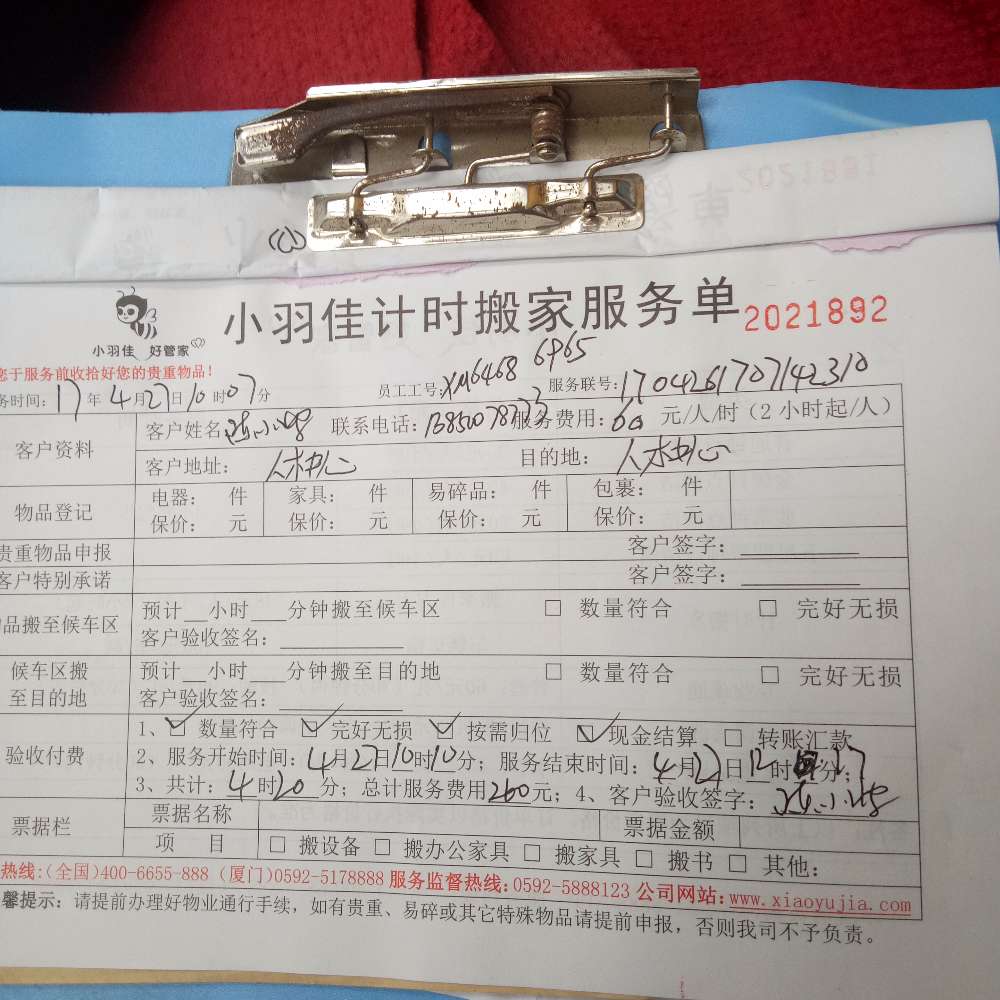 2021881
小羽佳 好管家
小羽佳计时搬家服务单 2021892
您于服务前收拾好您的贵重物品！
务时间：17年4月27日10时07分 员工工号：XM6468 6965 服务联号：1704261707142310
客户资料 客户姓名 联系电话： 服务费用：60 元/人/时（2小时起/人）
客户地址：人才中心 目的地：人才中心
物品登记 电器： 件 家具： 件 易碎品： 件 包裹： 件
保价： 元 保价： 元 保价： 元 保价： 元
贵重物品申报 客户签字：
客户特别承诺 客户签字：
品搬至候车区 预计 小时 分钟搬至候车区 □ 数量符合 □ 完好无损
客户验收签名：
候车区搬至目的地 预计 小时 分钟搬至目的地 □ 数量符合 □ 完好无损
客户验收签名：
验收付费 1、☑ 数量符合 ☑ 完好无损 ☑ 按需归位 ☑ 现金结算 □ 转账汇款
2、服务开始时间：4月27日10时10分；服务结束时间：4月27日12时 分；17
3、共计：4时20分；总计服务费用260元；4、客户验收签字：
票据栏 票据名称 票据金额
项 目 □ 搬设备 □ 搬办公家具 □ 搬家具 □ 搬书 □ 其他：
热线：(全国)400-6655-888 (厦门)0592-5178888 服务监督热线：0592-5888123 公司网站：www.xiaoyujia.com
馨提示：请提前办理好物业通行手续，如有贵重、易碎或其它特殊物品请提前申报，否则我司不予负责。